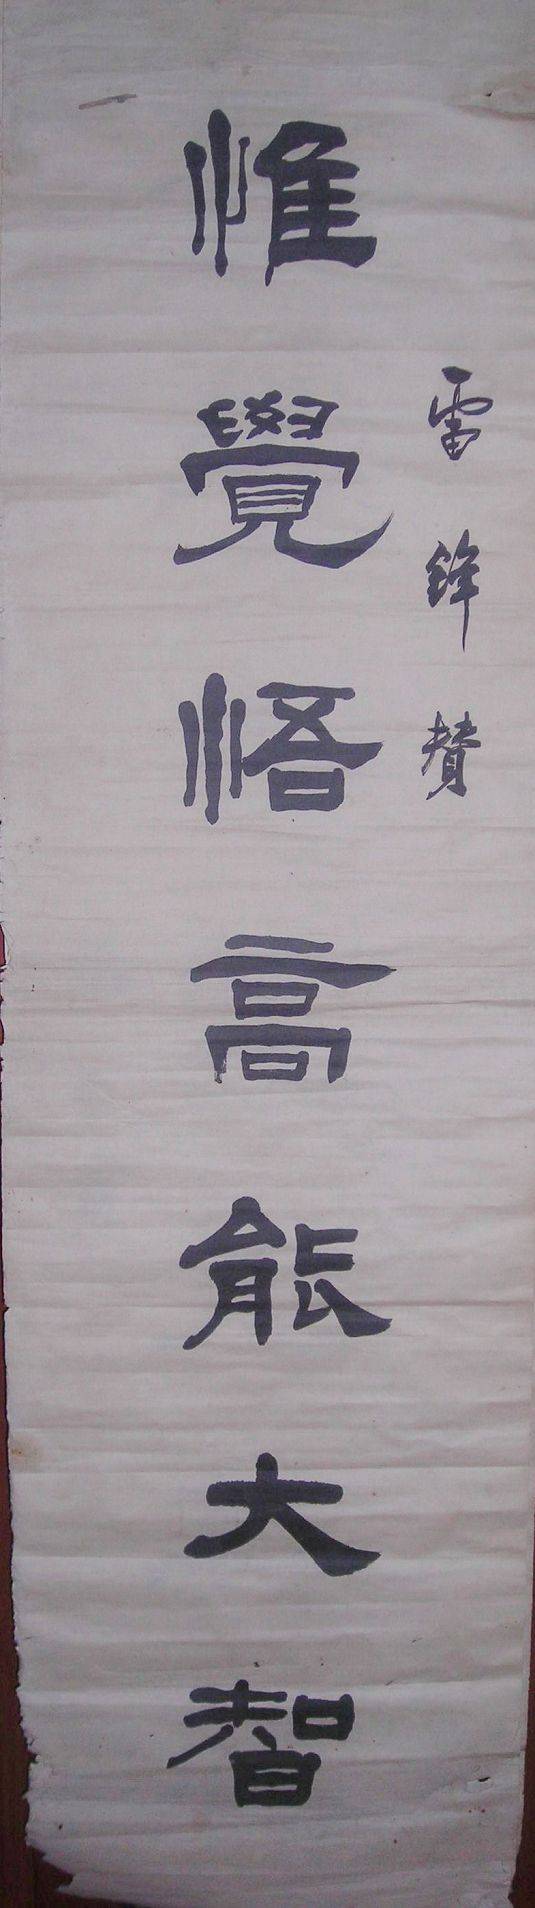 雷鋒贊
惟覺悟高能大智